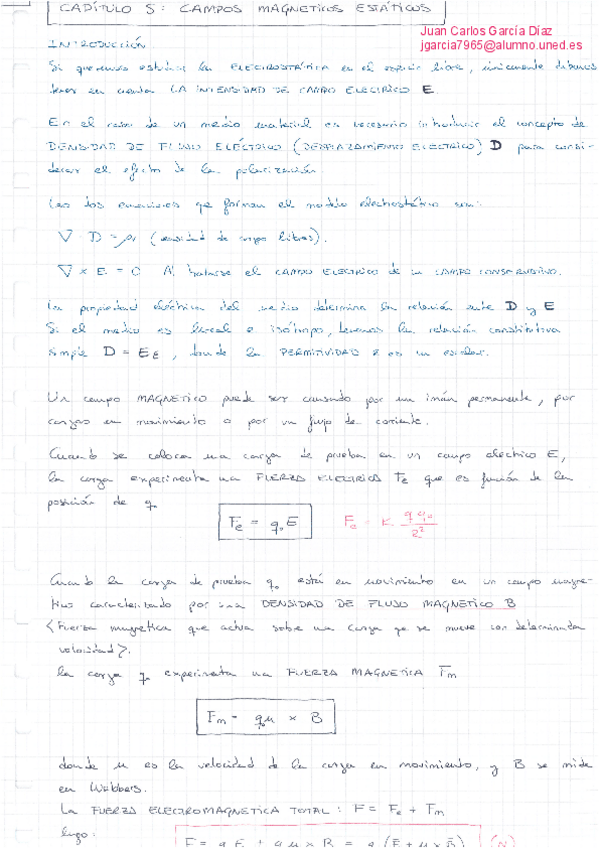 CAPÍTULO 5: CAMPOS MAGNETICOS ESTÁTICOS
Juan Carlos García Díaz
jgarcia7965@alumno.uned.es
INTRODUCCIÓN
Si queremos estudiar la ELECTROSTÁTICA en el espacio libre, únicamente debemos
tener en cuenta LA INTENSIDAD DE CAMPO ELECTRICO E.
En el caso de un medio material es necesario introducir el concepto de
DENSIDAD DE FLUJO ELÉCTRICO (DESPLAZAMIENTO ELECTRICO) D para consi-
derar el efecto de la polarización.
Las dos ecuaciones que forman el modelo electrostático son:
∇ · D = ρ (densidad de cargas libres).
∇ × E = 0 Al tratarse el CAMPO ELECTRICO de un CAMPO CONSERVATIVO.
La propiedad eléctrica del medio determina la relación entre D y E
Si el medio es lineal e isótropo, tenemos la relación constitutiva
simple D = εE, donde la PERMITIVIDAD ε es un escalar.
Un campo MAGNETICO puede ser causado por un imán permanente, por
cargas en movimiento o por un flujo de corriente.
Cuando se coloca una carga de prueba en un campo eléctrico E,
la carga experimenta una FUERZA ELECTRICA Fe que es función de la
posición de q.
Fe = q E
Fe = K
Cuando la carga de prueba q está en movimiento en un campo magné-
tico caracterizado por una DENSIDAD DE FLUJO MAGNETICO B
<Fuerza magnética que actúa sobre una carga que se mueve con determinada
velocidad>.
la carga q experimenta una FUERZA MAGNETICA Fm
Fm = qu × B
donde u es la velocidad de la carga en movimiento, y B se mide
en Webbers.
La FUERZA ELECTROMAGNETICA TOTAL: F = Fe + Fm
luego:
F = q E + q u × B = q (E + u × B) (N)